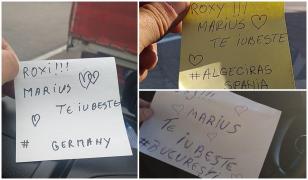 ROXI!!!
MARIUS
TE IUBESTE
# GERMANY
ROXY!!!
MARIUS
TE IUBESTE
#ALGECIRAS
SPANIA
MARIUS
TE IUBESTE
#BUCURESTI